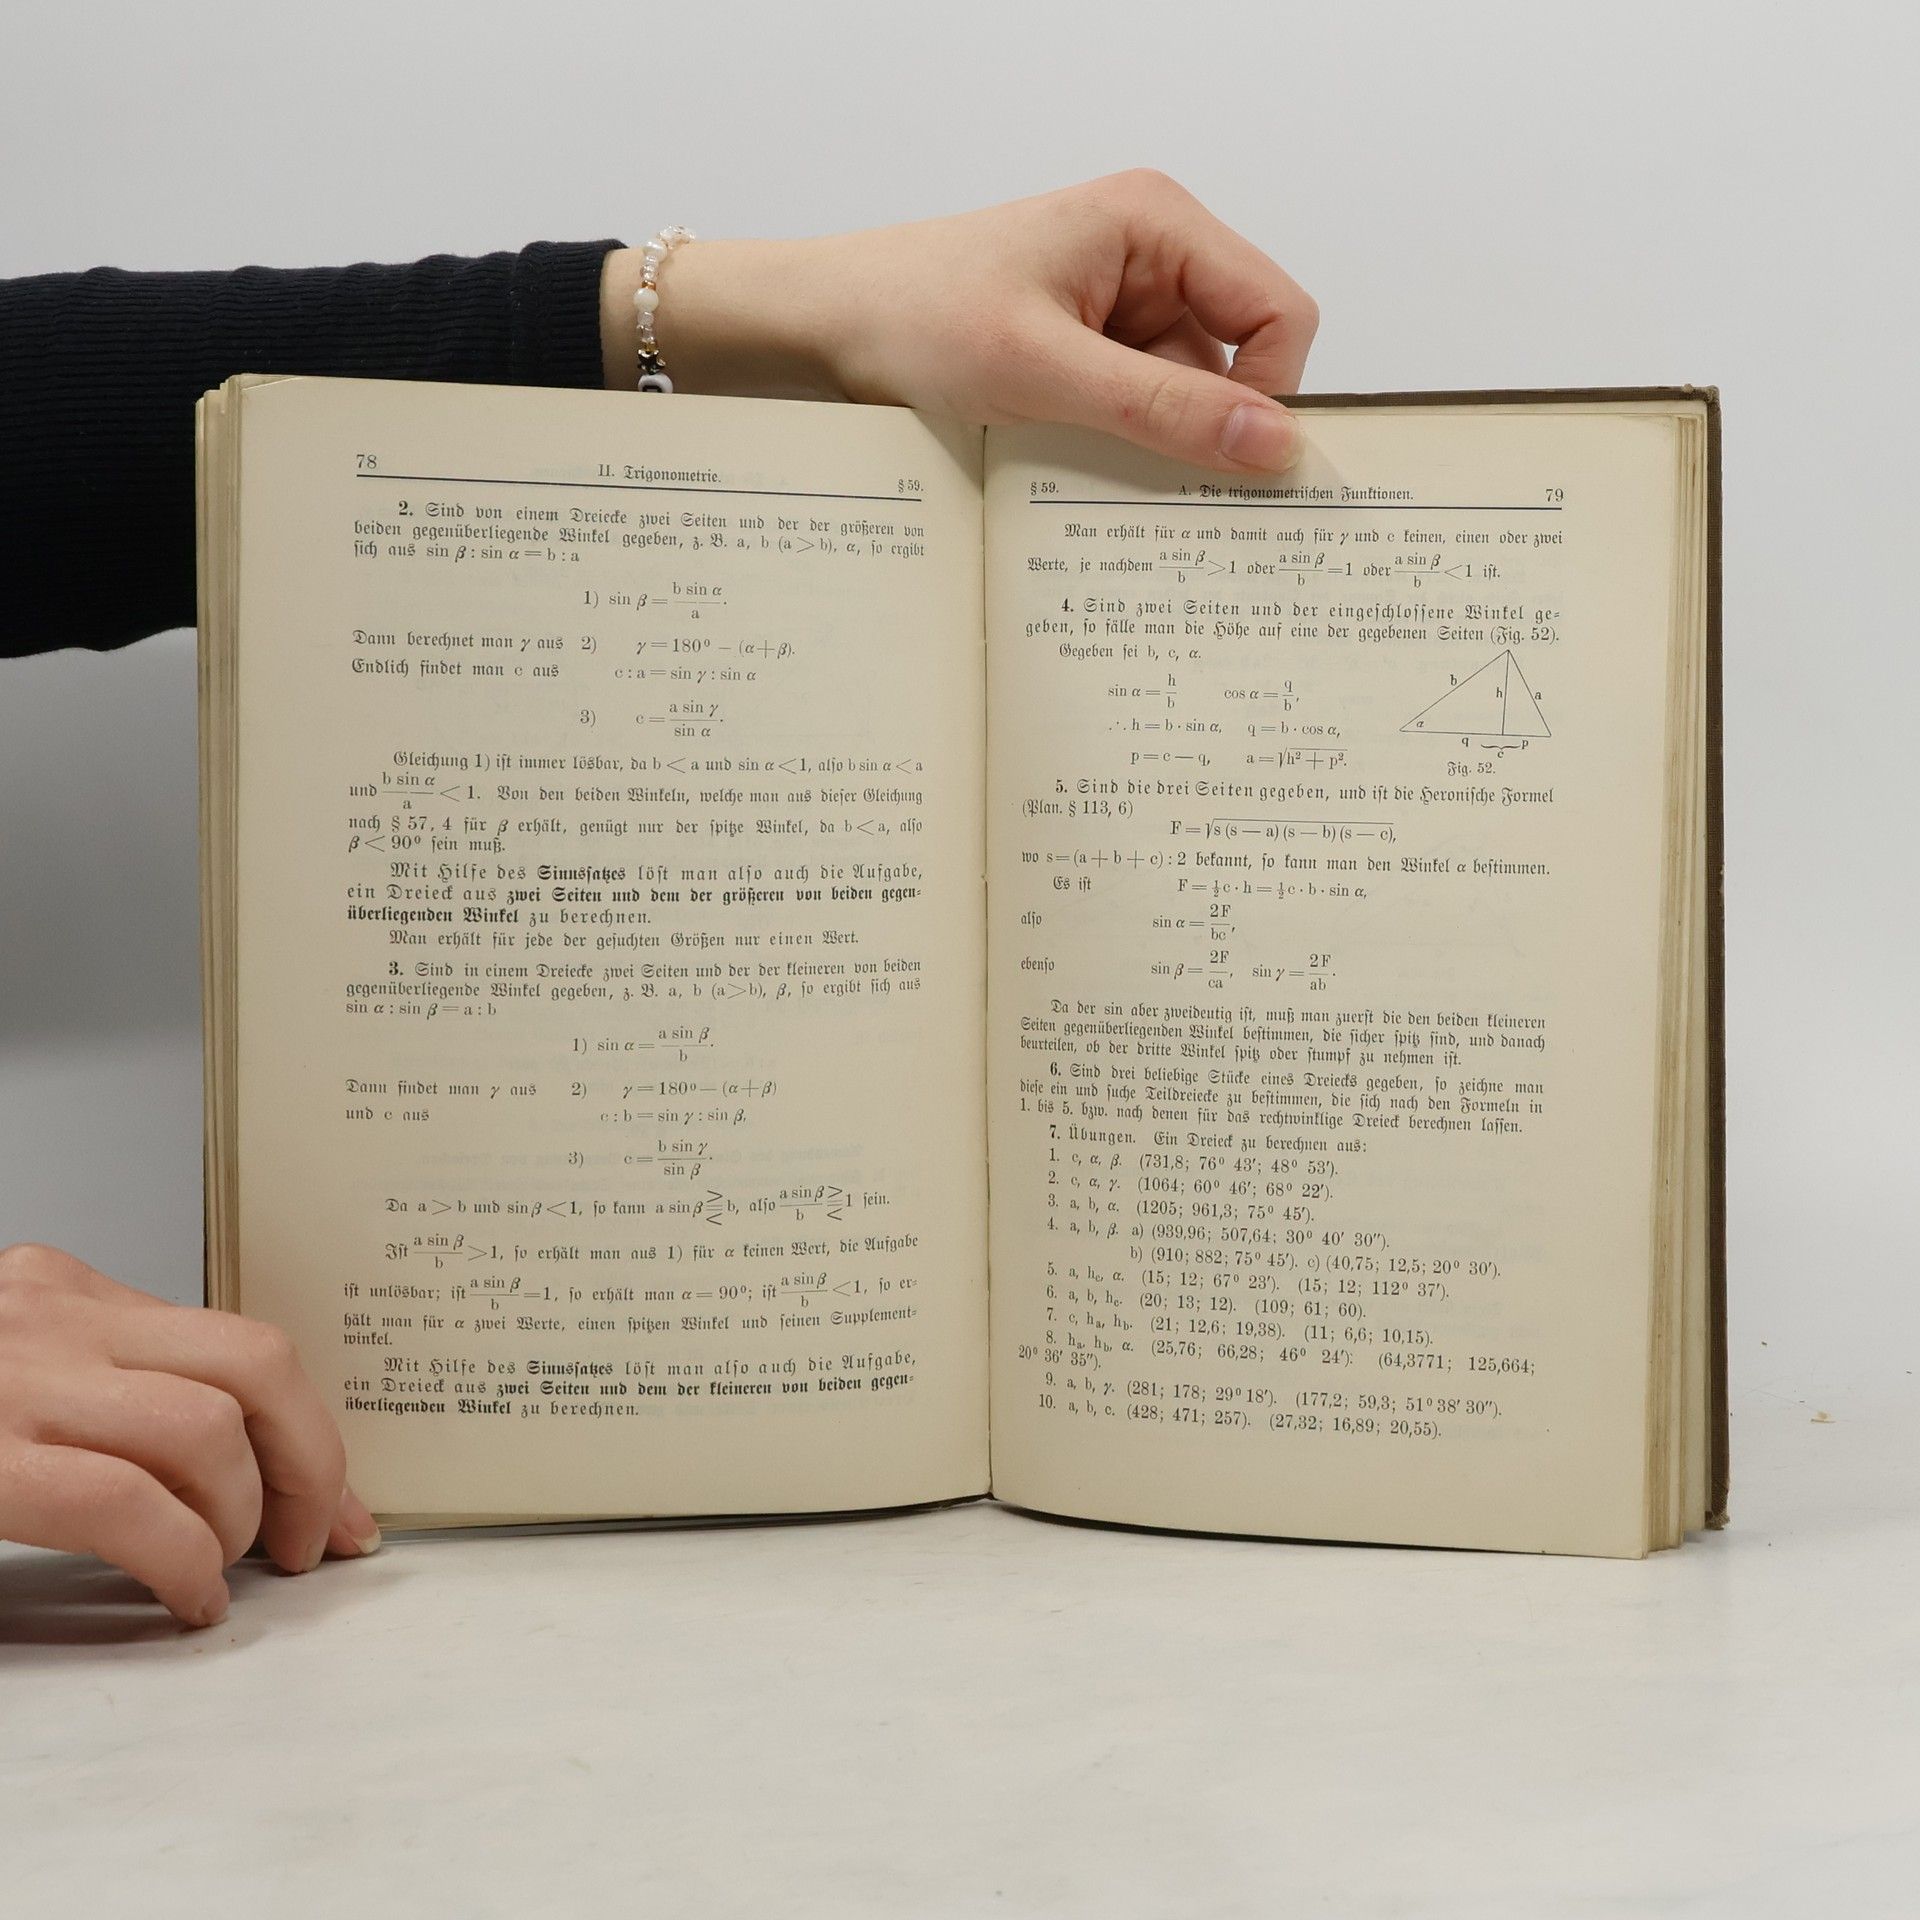 78
II. Trigonometrie.
§ 59.
2. Sind von einem Dreiecke zwei Seiten und der der größeren von
beiden gegenüberliegende Winkel gegeben, z. B. a, b (a > b), α, so ergibt
sich aus sin β : sin α = b : a
1) sin β = b sin α / a.
Dann berechnet man γ aus 2) γ = 180° − (α + β).
Endlich findet man c aus c : a = sin γ : sin α
3) c = a sin γ / sin α.
Gleichung 1) ist immer lösbar, da b < a und sin α < 1, also b sin α < a
und b sin α / a < 1. Von den beiden Winkeln, welche man aus dieser Gleichung
nach § 57, 4 für β erhält, genügt nur der spitze Winkel, da b < a, also
β < 90° sein muß.
Mit Hilfe des Sinussatzes löst man also auch die Aufgabe,
ein Dreieck aus zwei Seiten und dem der größeren von beiden gegen-
überliegenden Winkel zu berechnen.
Man erhält für jede der gesuchten Größen nur einen Wert.
3. Sind in einem Dreiecke zwei Seiten und der der kleineren von beiden
gegenüberliegende Winkel gegeben, z. B. a, b (a > b), β, so ergibt sich aus
sin α : sin β = a : b
1) sin α = a sin β / b.
Dann findet man γ aus 2) γ = 180° − (α + β)
und c aus c : b = sin γ : sin β,
3) c = b sin γ / sin β.
Da a > b und sin β < 1, so kann a sin β >=< b, also a sin β / b >=< 1 sein.
Ist a sin β / b > 1, so erhält man aus 1) für α keinen Wert, die Aufgabe
ist unlösbar; ist a sin β / b = 1, so erhält man α = 90°; ist a sin β / b < 1, so er-
hält man für α zwei Werte, einen spitzen Winkel und seinen Supplement-
winkel.
Mit Hilfe des Sinussatzes löst man also auch die Aufgabe,
ein Dreieck aus zwei Seiten und dem der kleineren von beiden gegen-
überliegenden Winkel zu berechnen.
§ 59.
A. Die trigonometrischen Funktionen.
79
Man erhält für α und damit auch für γ und c keinen, einen oder zwei
Werte, je nachdem a sin β / b > 1 oder a sin β / b = 1 oder a sin β / b < 1 ist.
4. Sind zwei Seiten und der eingeschlossene Winkel ge-
geben, so fälle man die Höhe auf eine der gegebenen Seiten (Fig. 52).
Gegeben sei b, c, α.
sin α = h / b cos α = q / b,
∴ h = b · sin α, q = b · cos α,
p = c − q, a = √(h² + p²).
b h a
α
q p
c
Fig. 52.
5. Sind die drei Seiten gegeben, und ist die Heronische Formel
(Plan. § 113, 6)
F = √(s (s − a) (s − b) (s − c)),
wo s = (a + b + c) : 2 bekannt, so kann man den Winkel α bestimmen.
Es ist F = ½ c · h = ½ c · b · sin α,
also sin α = 2F / bc,
ebenso sin β = 2F / ca, sin γ = 2F / ab.
Da der sin aber zweideutig ist, muß man zuerst die den beiden kleineren
Seiten gegenüberliegenden Winkel bestimmen, die sicher spitz sind, und danach
beurteilen, ob der dritte Winkel spitz oder stumpf zu nehmen ist.
6. Sind drei beliebige Stücke eines Dreiecks gegeben, so zeichne man
diese ein und suche Teildreiecke zu bestimmen, die sich nach den Formeln in
1. bis 5. bzw. nach denen für das rechtwinklige Dreieck berechnen lassen.
7. Übungen. Ein Dreieck zu berechnen aus:
1. c, α, β. (731,8; 76° 43′; 48° 53′).
2. c, α, γ. (1064; 60° 46′; 68° 22′).
3. a, b, α. (1205; 961,3; 75° 45′).
4. a, b, β. a) (939,96; 507,64; 30° 40′ 30″).
b) (910; 882; 75° 45′). c) (40,75; 12,5; 20° 30′).
5. a, h_c, α. (15; 12; 67° 23′). (15; 12; 112° 37′).
6. a, b, h_c. (20; 13; 12). (109; 61; 60).
7. c, h_a, h_b. (21; 12,6; 19,38). (11; 6,6; 10,15).
8. h_a, h_b, α. (25,76; 66,28; 46° 24′): (64,3771; 125,664;
20° 36′ 35″).
9. a, b, γ. (281; 178; 29° 18′). (177,2; 59,3; 51° 38′ 30″).
10. a, b, c. (428; 471; 257). (27,32; 16,89; 20,55).